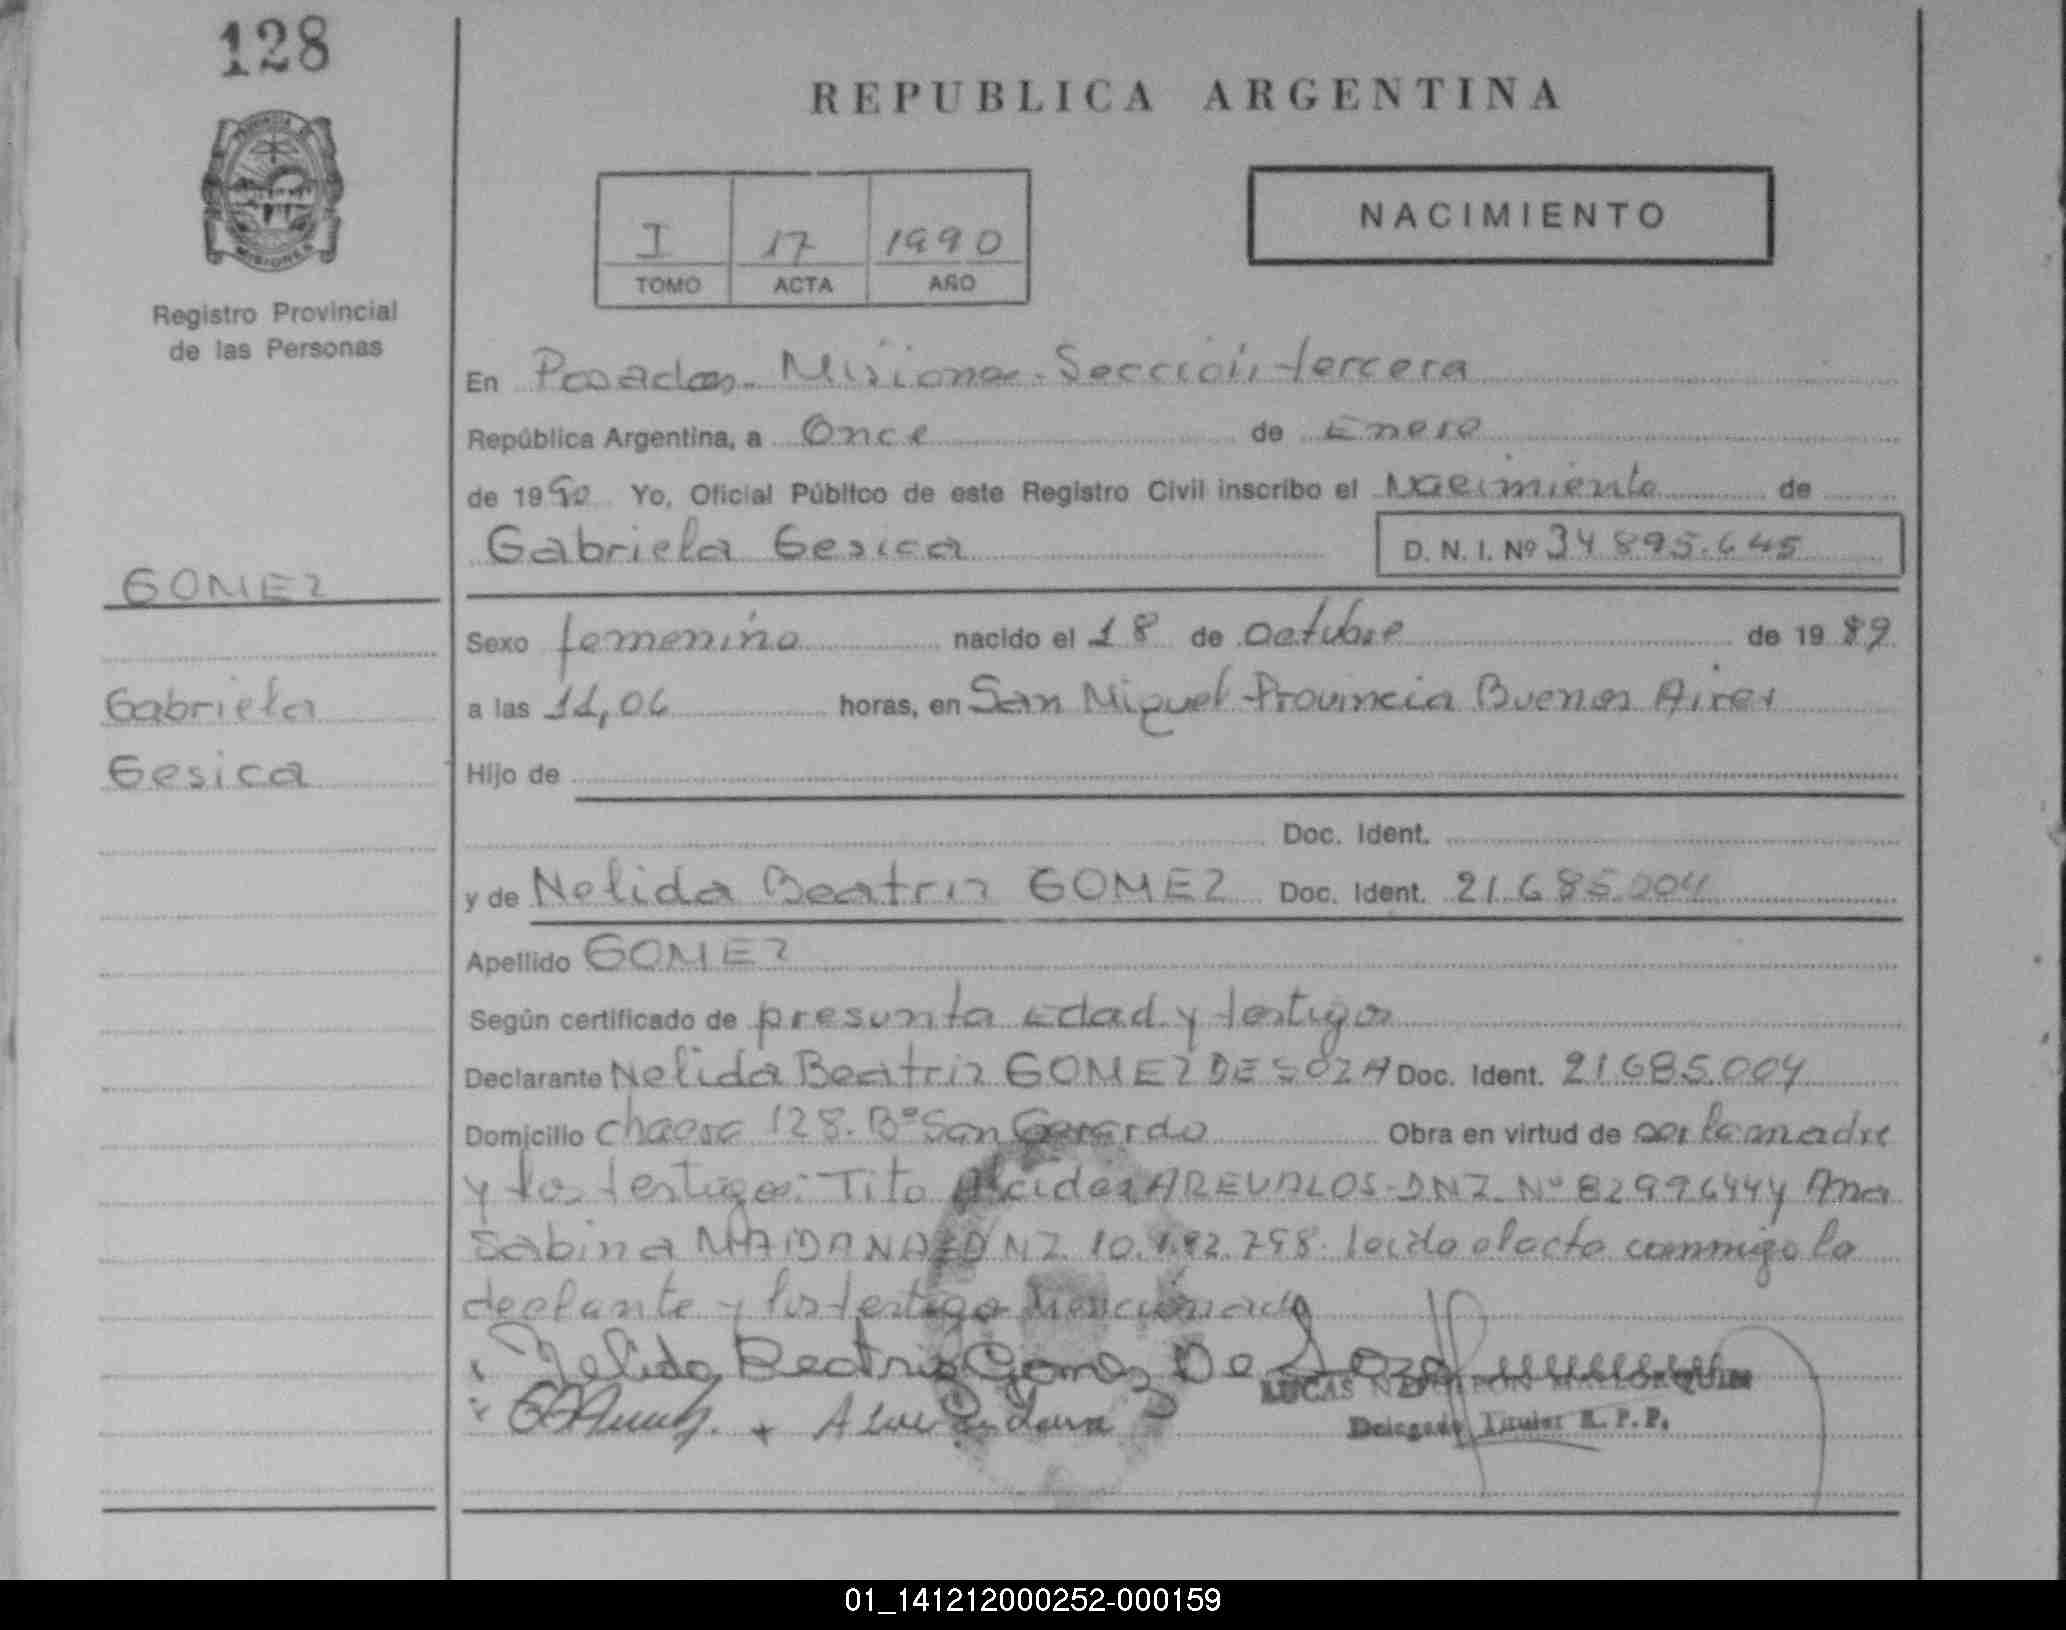 128
REPUBLICA ARGENTINA
PROVINCIA DE
MISIONES
Registro Provincial
de las Personas
I 17 1990
TOMO ACTA AÑO
NACIMIENTO
En Posadas. Misiones. Sección tercera
República Argentina, a Once de Enero
de 1990 Yo, Oficial Público de este Registro Civil inscribo el Nacimiento de
Gabriela Gesica D. N. I. Nº 34 895.645
GOMEZ
Gabriela
Gesica
Sexo femenino nacido el 18 de octubre de 1989
a las 11,06 horas, en San Miguel Provincia Buenos Aires
Hijo de
Doc. Ident.
y de Nelida Beatriz GOMEZ Doc. Ident. 21.685.004
Apellido GOMEZ
Según certificado de presunta Edad y testigos
Declarante Nelida Beatriz GOMEZ DE SOZA Doc. Ident. 21.685.004
Domicilio chacra 128. Bº San Gerardo Obra en virtud de ser la madre
y los testigos: Tito Alcides AREVALOS-DNI. Nº 8299644 y Ana
Sabina MAIDANA DNI 10. 798. leida el acta conmigo la
declante y los testigos mencionado
Nelida Beatriz Gomez De Soza
LUCAS
Delegado Titular R. P. P.
01_141212000252-000159